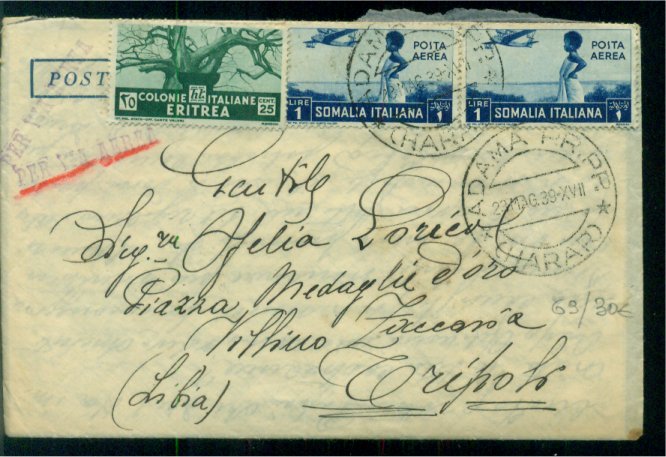 POST
PER VIA AEREA
٢٥ COLONIE ITALIANE CENT. 25
ERITREA
POSTA
AEREA
LIRE
1 SOMALIA ITALIANA ١
POSTA
AEREA
LIRE
1 SOMALIA ITALIANA ١
ADAMA
(HARAR)
ADAMA PR.PP.
23 MAG.39-XVII
(HARAR)
Gentile
Sig.ra Ofelia
Piazza Medaglie d'oro
Villino Zaccaria
(Libia) Tripoli
69/30€